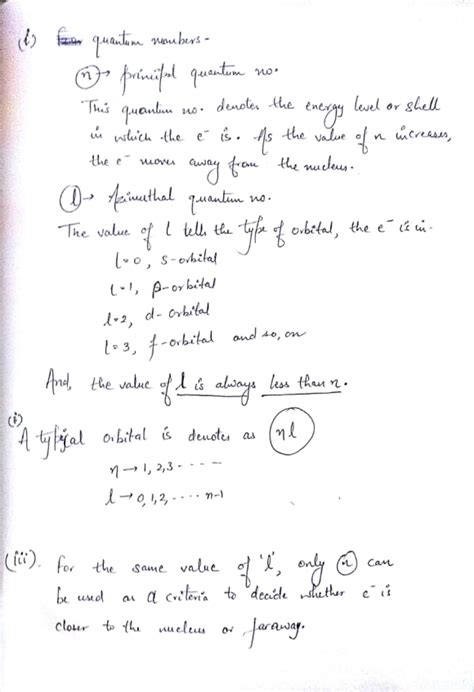 (i) quantum numbers -
(n) → principal quantum no.
This quantum no. denotes the energy level or shell
in which the e⁻ is. As the value of n increases,
the e⁻ moves away from the nucleus.
(l) → Azimuthal quantum no.
The value of l tells the type of orbital, the e⁻ is in.
l=0, s-orbital
l=1, p-orbital
l=2, d-orbital
l=3, f-orbital and so, on
And, the value of l is always less than n.
(i)
A typical orbital is denotes as (nl)
n → 1, 2, 3 - - - - -
l → 0, 1, 2, ..... n-1
(iii). For the same value of 'l', only (n) can
be used as a criteria to decide whether e⁻ is
closer to the nucleus or faraway.